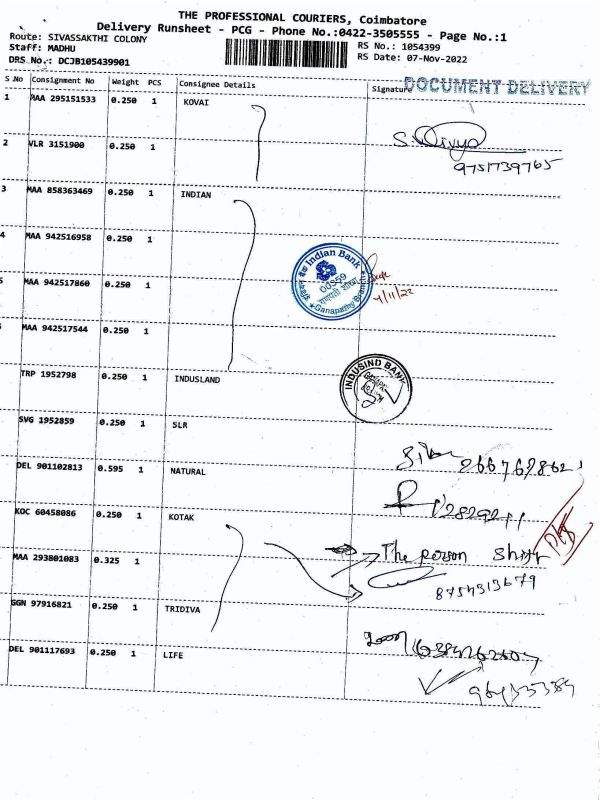 THE PROFESSIONAL COURIERS, Coimbatore
Delivery Runsheet - PCG - Phone No.:0422-3505555 - Page No.:1
Route: SIVASSAKTHI COLONY
Staff: MADHU
DRS No.: DCJB105439901
RS No.: 1054399
RS Date: 07-Nov-2022
S No Consignment No Weight PCS Consignee Details Signature
DOCUMENT DELIVERY
1 MAA 295151533 0.250 1 KOVAI
2 VLR 3151900 0.250 1
9751739765
3 MAA 858363469 0.250 1 INDIAN
4 MAA 942516958 0.250 1
Indian Bank
00S59
Ganapathy Branch
7/11/22
MAA 942517860 0.250 1
MAA 942517544 0.250 1
TRP 1952798 0.250 1 INDUSLAND
INDUSIND BANK
SVG 1952859 0.250 1 SLR
DEL 901102813 0.595 1 NATURAL
KOC 60458086 0.250 1 KOTAK
The person
MAA 293801083 0.325 1
8754313679
GGN 97916821 0.250 1 TRIDIVA
DEL 901117693 0.250 1 LIFE